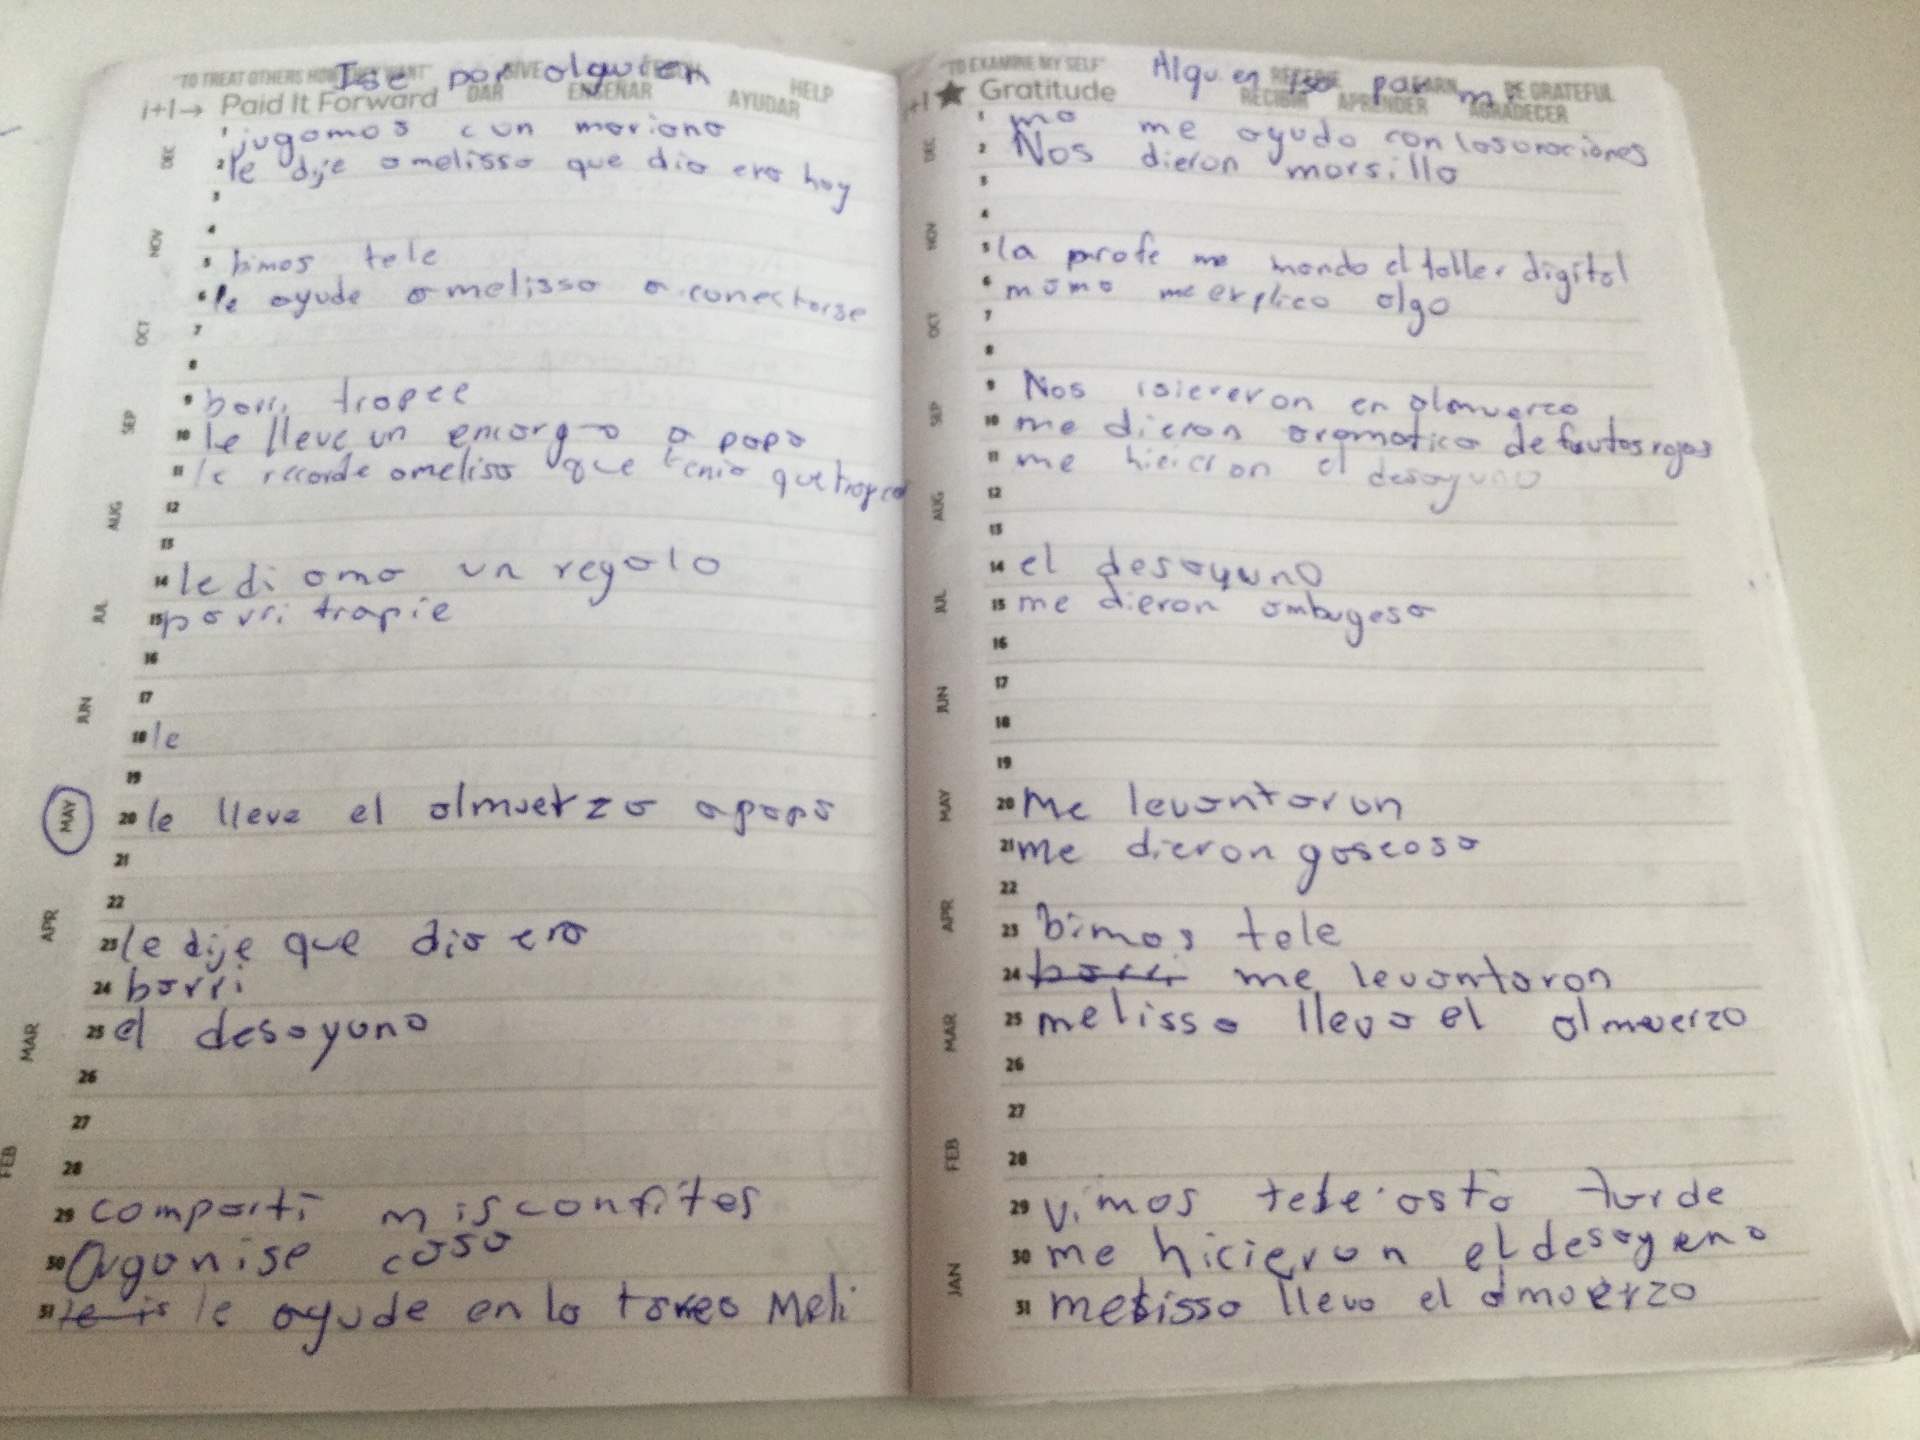 "TO TREAT OTHERS HOW THEY WANT" GIVE TEACH HELP
Ise por alguien
i+1→ Paid It Forward DAR ENSEÑAR AYUDAR
1 jugamos con mariana
2 le dije a melissa que dia era hoy
3
4
5 bimos tele
6 le ayude a melissa a conectarse
7
8
9 barri trapee
10 le lleve un encargo a papa
11 le recorde a melisa que tenia que trapear
12
13
14 le di a ma un regalo
15 barri trapie
16
17
18 le
19
20 le lleve el almuerzo a papa
21
22
23 le dije que dia era
24 barri
25 el desayuno
26
27
28
29 comparti mis confites
30 Organise cosa
31 le is le ayude en la tarea Meli
DEC
NOV
OCT
SEP
AUG
JUL
JUN
MAY
APR
MAR
FEB
"TO EXAMINE MY SELF" RECEIVE LEARN BE GRATEFUL
Alguien iso para mi
+1★ Gratitude RECIBIR APRENDER AGRADECER
1 ma me ayudo con las oraciones
2 Nos dieron morsilla
3
4
5 la profe me mando el taller digital
6 mama me explico algo
7
8
9 Nos isiereron en almuerzo
10 me dieron aromatica de frutos rojos
11 me hicieron el desayuno
12
13
14 el desayuno
15 me dieron ambugesa
16
17
18
19
20 Me levantaron
21 me dieron gaseosa
22
23 bimos tele
24 barri me levantaron
25 melissa lleva el almuerzo
26
27
28
29 vimos tele asta tarde
30 me hicieron el desayeno
31 melissa llevo el almuerzo
DEC
NOV
OCT
SEP
AUG
JUL
JUN
MAY
APR
MAR
FEB
JAN